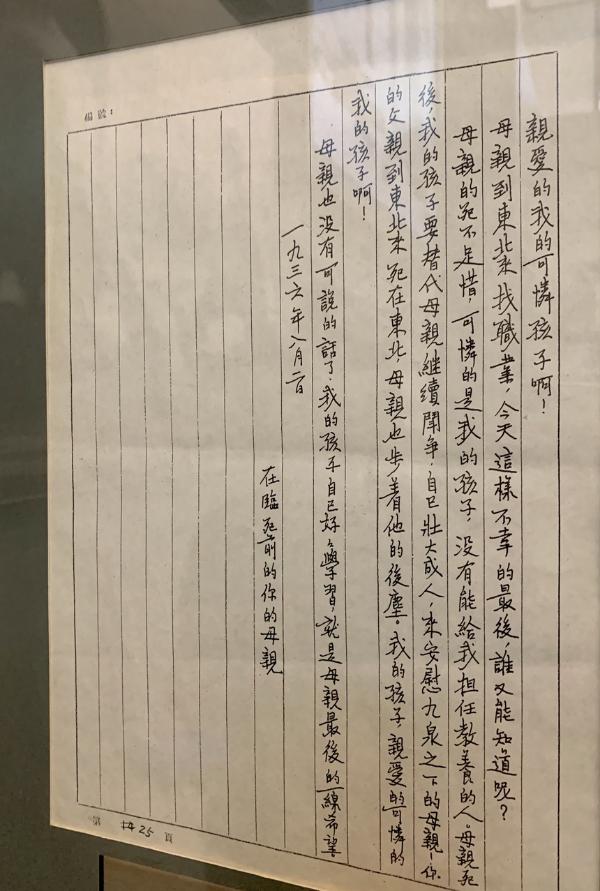 編號：
親愛的我的可憐孩子啊！
母親到東北來找職業，今天這樣不幸的最後，誰又能知道呢？
母親的死不足惜，可憐的是我的孩子，沒有能給我担任教養的人。母親死
後，我的孩子要替代母親繼續鬥爭，自己壯大成人，來安慰九泉之下的母親！你
的父親到東北來死在東北，母親也步着他的後塵。我的孩子，親愛的可憐的
我的孩子啊！
母親也沒有可說的話了，我的孩子自己好々學習，就是母親最後的一線希望。
一九三六年八月二日
在臨死前的你的母親
第 25 頁